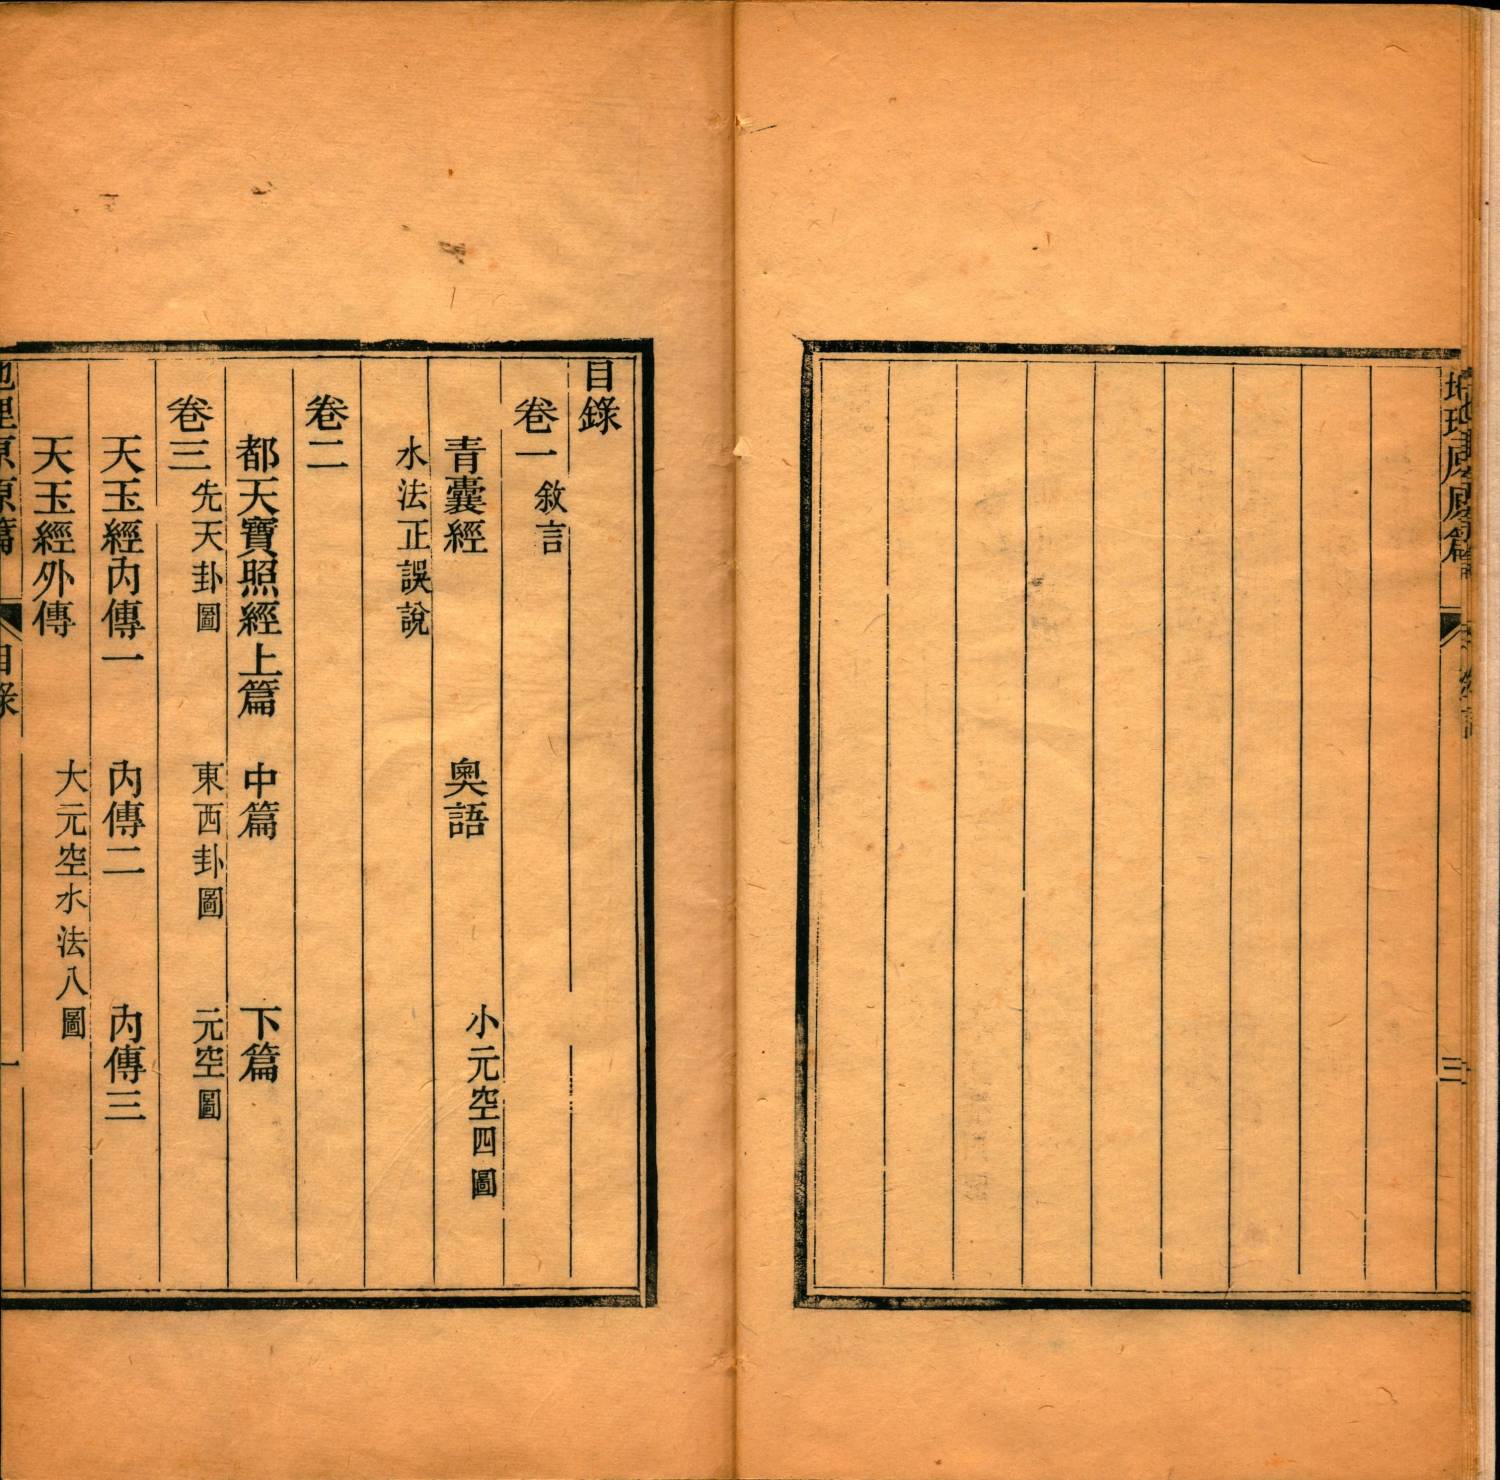 三
目錄
卷一 敘言
青囊經 奧語 小元空四圖
水法正誤說
卷二
都天寶照經上篇 中篇 下篇
卷三 先天卦圖 東西卦圖 元空圖
天玉經內傳一 內傳二 內傳三
天玉經外傳 大元空水法八圖
地理原原篇 目錄 一